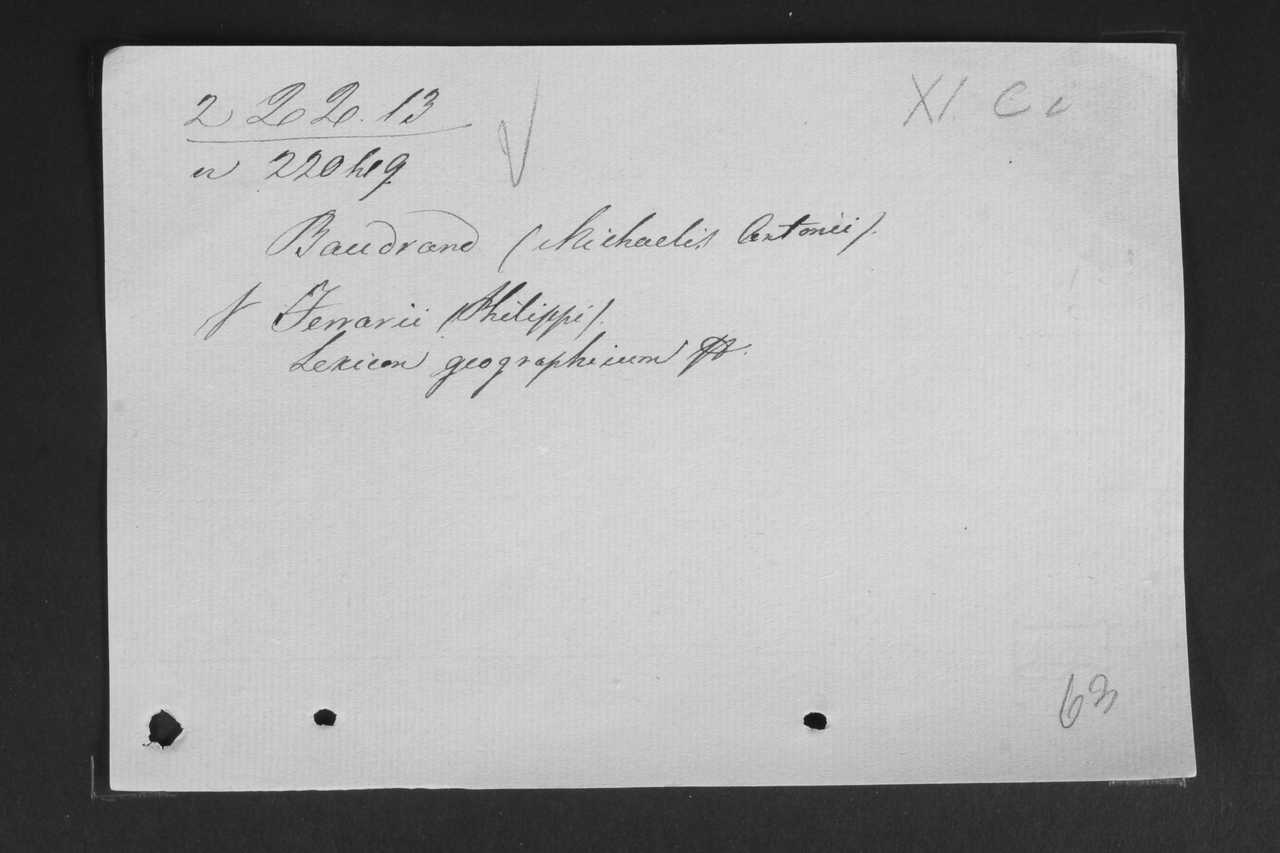 2 22.13
XI. C c
n 220 h 9
Baudrand (Michaelis Antonii).
Ferrarii (Philippi).
Lexicon geographicum
63